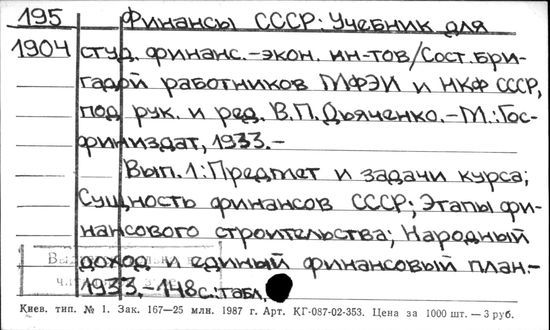 195 Финансы СССР: Учебник для
1904 студ. финанс.-экон. ин-тов/Сост. бри-
гадой работников МФЭИ и НКФ СССР,
под рук. и ред. В.П. Дьяченко.-М.: Гос-
финиздат, 1933.-
Вып. 1: Предмет и задачи курса;
Сущность финансов СССР; Этапы фи-
нансового строительства; Народный
доход и единый финансовый план.-
1933.-148с.: табл.
Киев. тип. № 1. Зак. 167—25 млн. 1987 г. Арт. КГ-087-02-353. Цена за 1000 шт. — 3 руб.